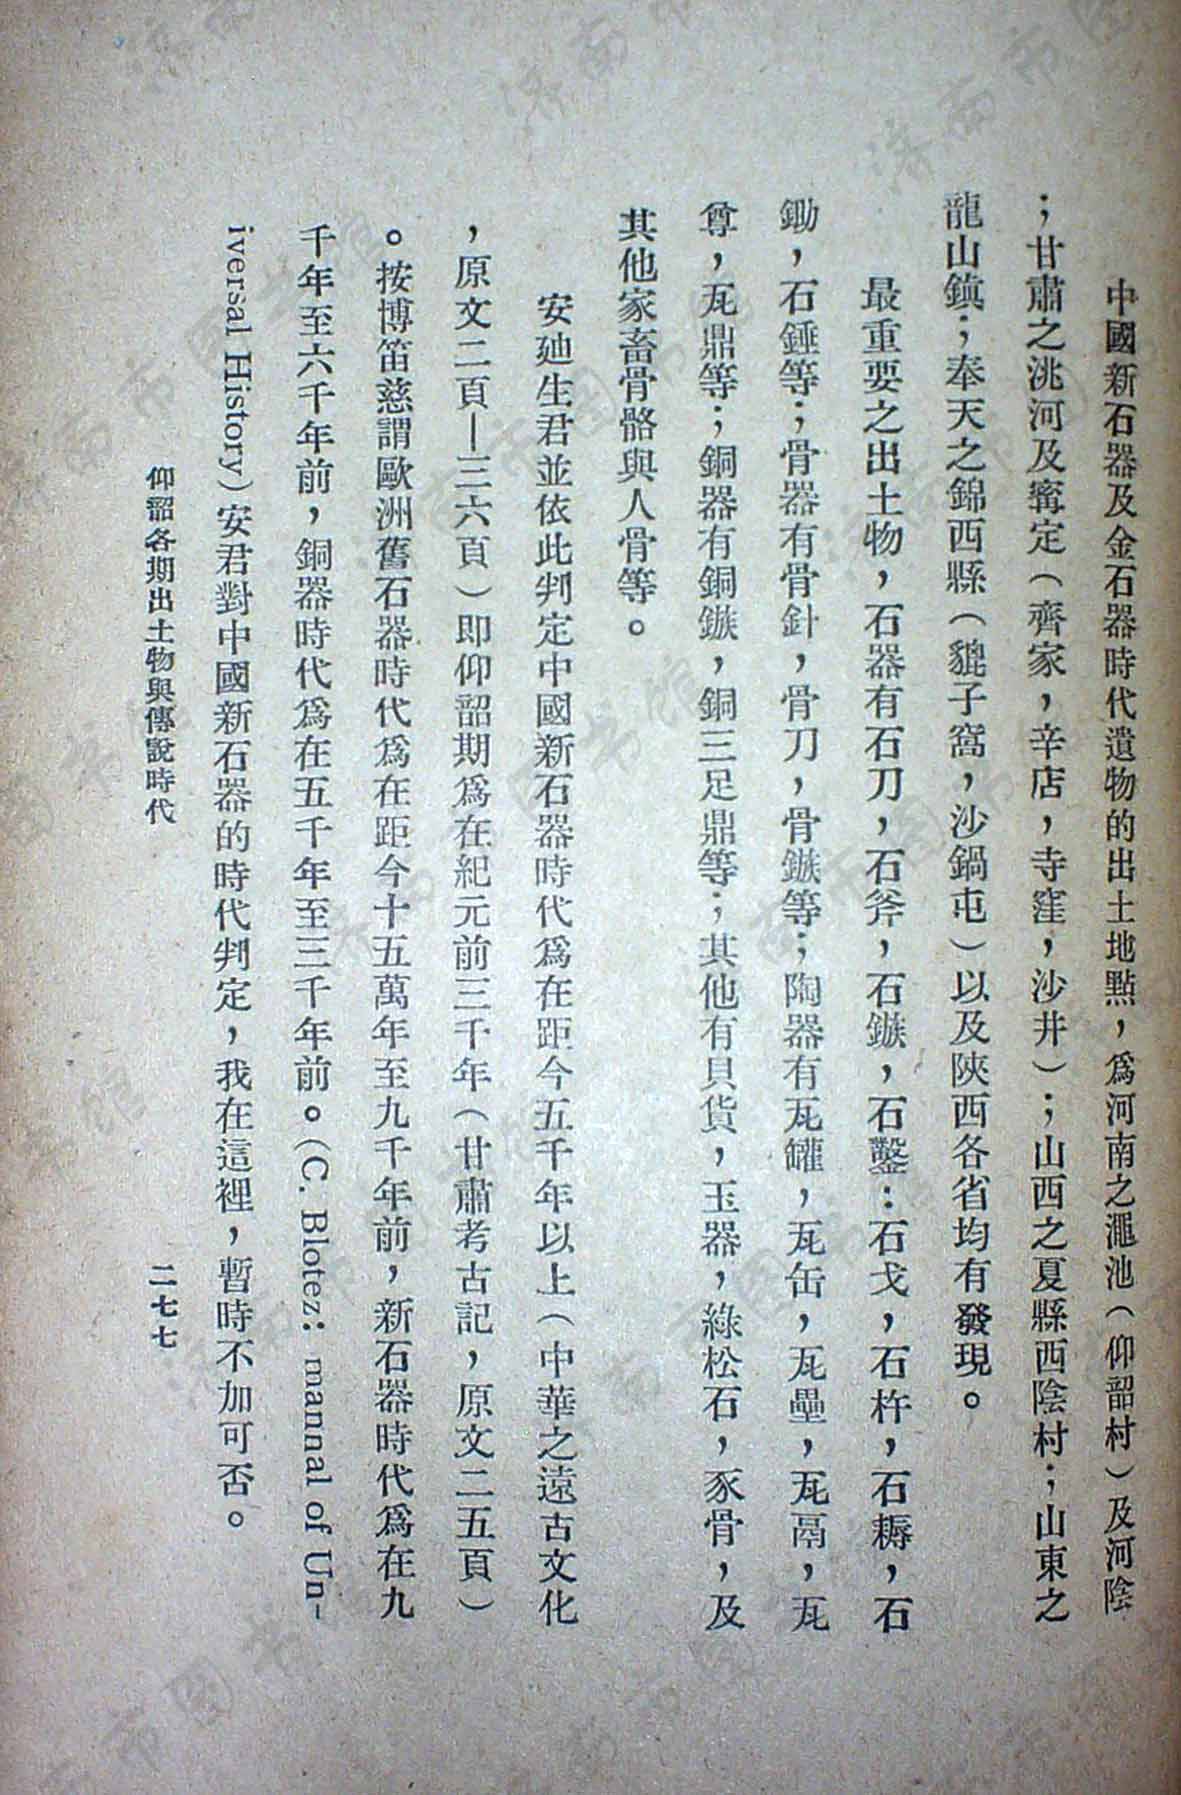 中國新石器及金石器時代遺物的出土地點，爲河南之澠池（仰韶村）及河陰
；甘肅之洮河及寗定（齊家，辛店，寺窪，沙井）；山西之夏縣西陰村；山東之
龍山鎮；奉天之錦西縣（貔子窩，沙鍋屯）以及陝西各省均有發現。
最重要之出土物，石器有石刀，石斧，石鏃，石鑿：石戈，石杵，石耨，石
鋤，石錘等；骨器有骨針，骨刀，骨鏃等；陶器有瓦罐，瓦缶，瓦壘，瓦鬲，瓦
尊，瓦鼎等；銅器有銅鏃，銅三足鼎等；其他有貝貨，玉器，綠松石，豕骨，及
其他家畜骨骼與人骨等。
安廸生君並依此判定中國新石器時代爲在距今五千年以上（中華之遠古文化
，原文二頁—三六頁）即仰韶期爲在紀元前三千年（甘肅考古記，原文二五頁）
。按博笛慈謂歐洲舊石器時代爲在距今十五萬年至九千年前，新石器時代爲在九
千年至六千年前，銅器時代爲在五千年至三千年前。(C. Blotez: mannal of Un-
iversal History) 安君對中國新石器的時代判定，我在這裡，暫時不加可否。
仰韶各期出土物與傳說時代
二七七
济南市图书馆